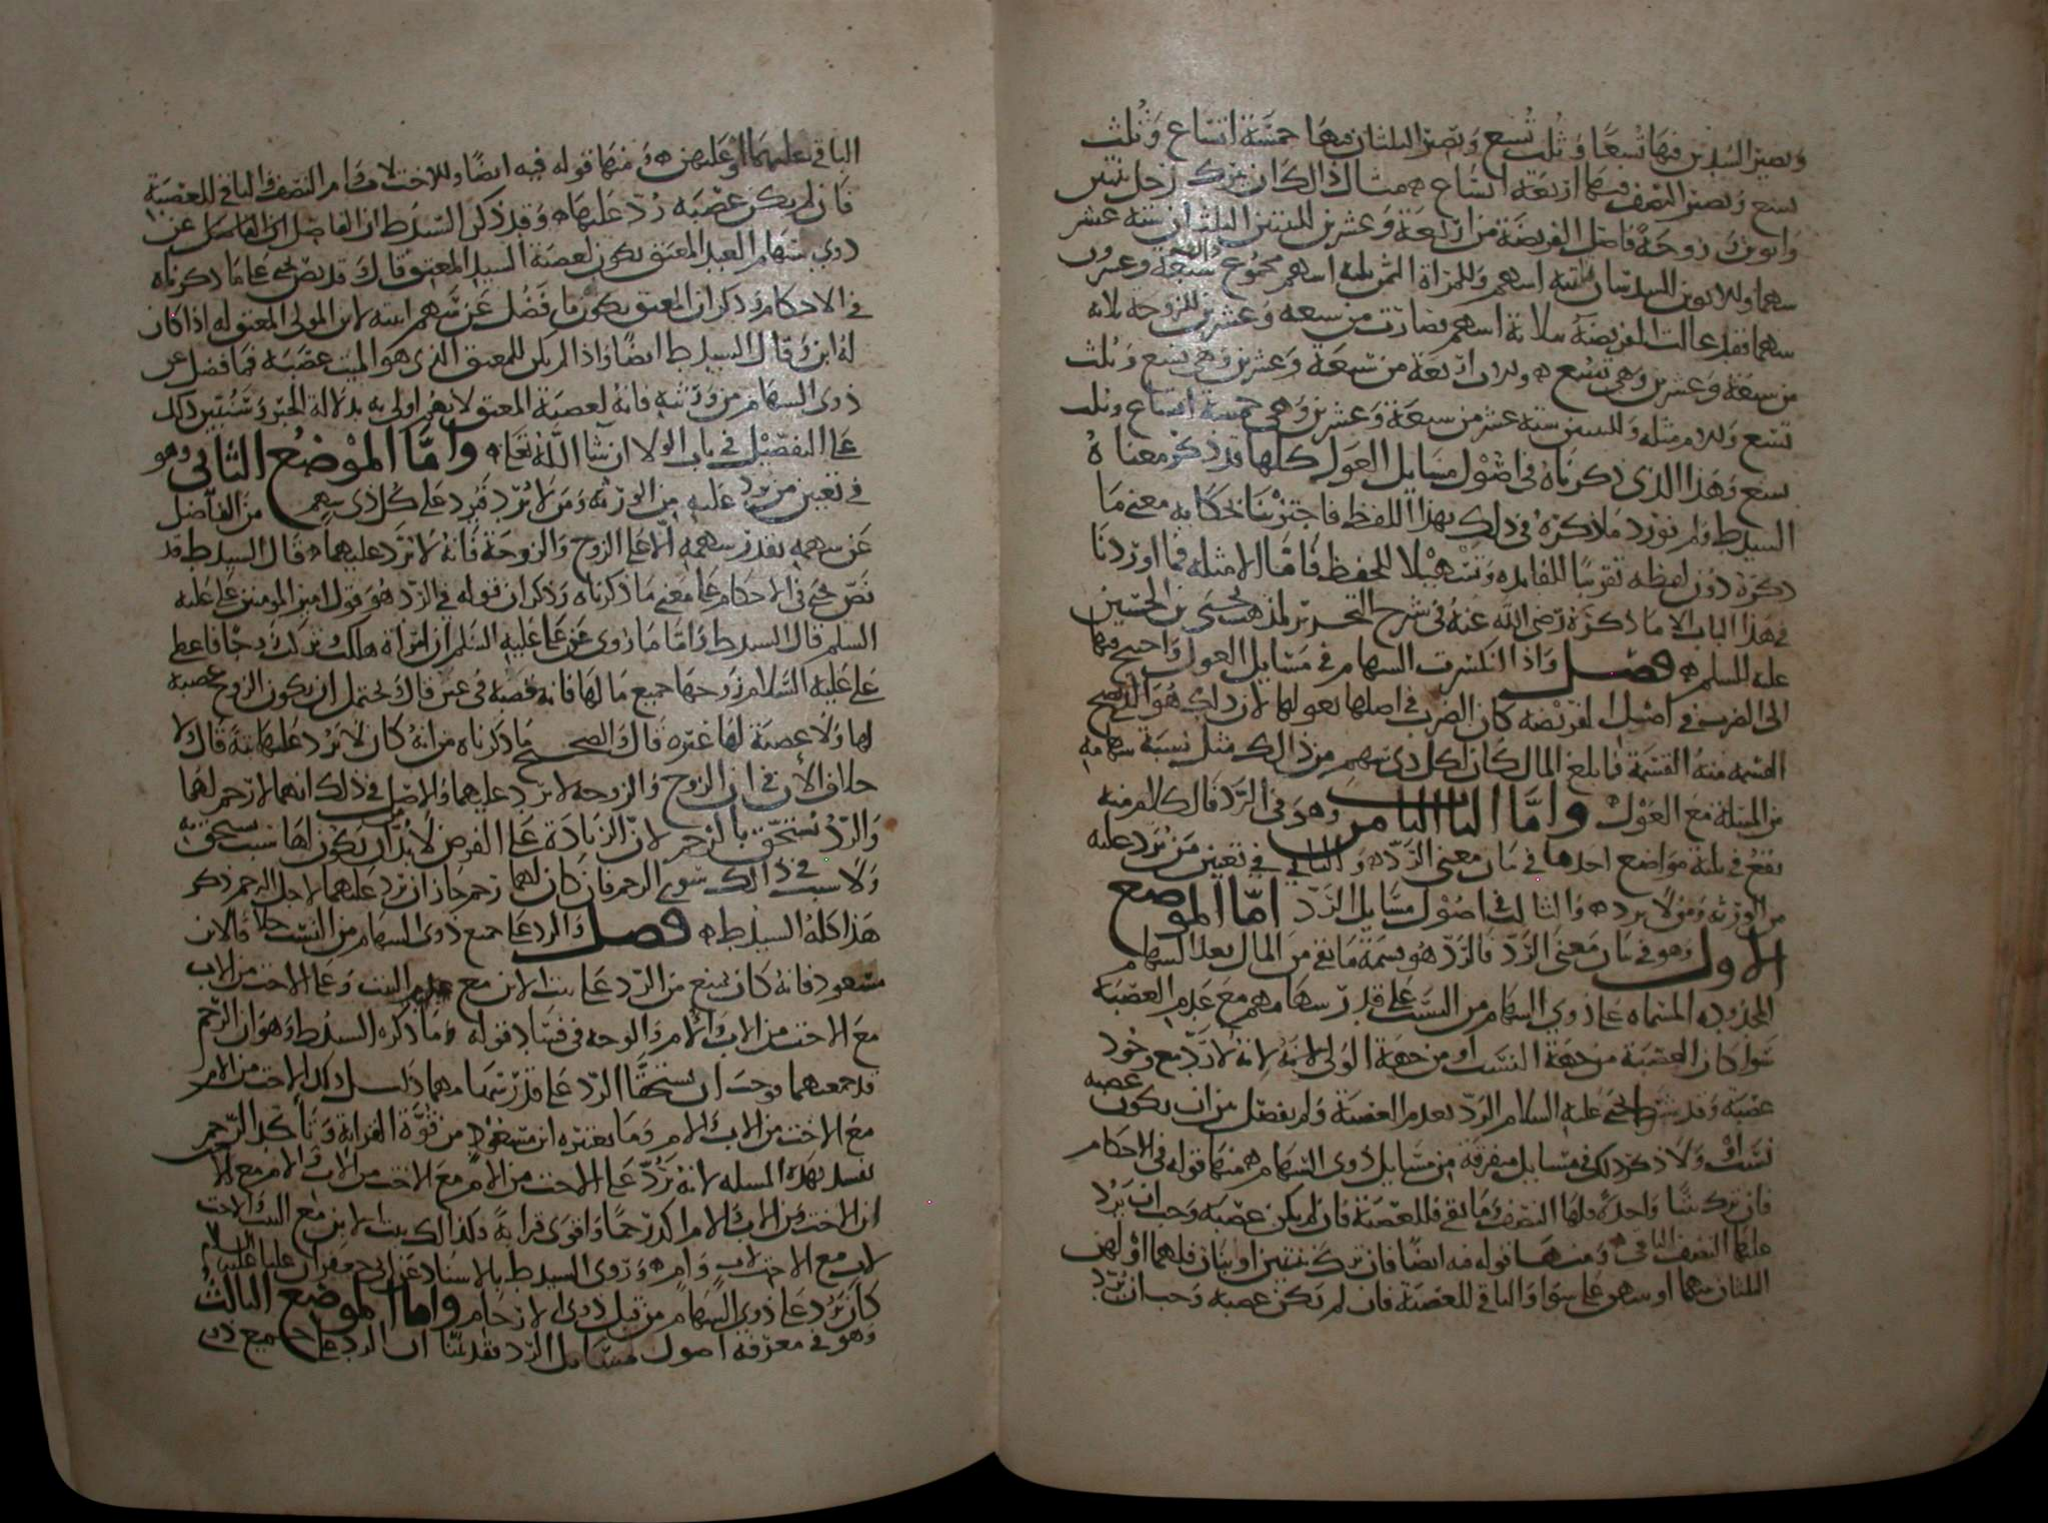 ويصير السدس فيها تسعا وثلث تسع ويصير الثلثان فيها خمسة اتساع وثلث
تسع ويصير النصف فيها اربعة اتساع مثال ذلك ان ترك رجل بنتين
وابوين وزوجة فاصل الفريضة من اربعة وعشرين للبنتين الثلثان ستة عشر
سهما وللابوين السدسان ثمنية اسهم وللمراة الثمن ثلثة اسهم مجموع ذلك سبعة وعشرون
سهما فقد عالت الفريضة بثلاثة اسهم فصارت من سبعة وعشرين للزوجة ثلاثة
من سبعة وعشرين وهي تسع وللاب اربعة من سبعة وعشرين وهي تسع وثلث
تسع وللام مثله وللبنتين ستة عشر من سبعة وعشرين وهي خمسة اتساع وثلث
تسع وهذا الذي ذكرناه في اصول مسايل العول كلها قد ذكر معناه
السيد ط ولم نورد ما ذكره في ذلك بهذا اللفظ فاجتزينا بحكاية معنى ما
ذكره دون لفظه تقريبا للفايدة وتسهيلا للحفظ فاقا الا مثله فما اوردنا
في هذا الباب الا ما ذكره رضي الله عنه في شرح التحرير لمذهب يحيى بن الحسين
عليه السلم فصل واذا انكسرت السهام في مسايل العول واحتيج فيها
الى الضرب في اصل الفريضة كان الضرب في اصلها بعولها لان ذلك هو الذي تصح
القسمة منه القسمة فما بلغ المال كان لكل ذي سهم من ذلك مثل نسبة سهامه
من المسلة مع العول واما الباب الثامن وهو في الرد فالكلام منه
يقع في ثلثة مواضع احدها في بيان معنى الرد والثاني في تعيين من يرد عليه
من الورثة ومن لا يرد والثالث في اصول مسايل الرد اما الموضع
الاول وهو في بيان معنى الرد فالرد هو قسمة ما بقي من المال بعد السهام
المحدودة المسماة على ذوي السهام من النسب على قدر سهامهم مع عدم العصبة
سوا كان العصبة من جهة النسب او من جهة الولي لانه لا رد مع وجود
عصبة وقد شرط يحيى عليه السلام الرد بعدم العصبة ولم يفصل بين ان يكون عصبه
نسب او ولا ذكر ذلك في مسايل متفرقة من مسايل ذوي السهام منها قوله في الاحكام
فان ترك بنتا واحدة فلها النصف وما بقي فللعصبة فان لم يكن عصبة وجب ان يرد
عليها النصف الباقي ومنها قوله فيه ايضا فان ترك بنتين او بنات فلهما او لهن
الثلثان بينهما او بينهن على سوا والباقي للعصبة فان لم تكن عصبة وجب ان يرد
الباقي عليهما او عليهن ومنها قوله فيه ايضا وللاخت لاب وام النصف والباقي للعصبة
فان لم يكن عصبة رد عليها وقد ذكر السيد ط ان الفاضل عن
ذوي سهام العبد المعتق يكون لعصبة السيد المعتق قال قد نص يحيى على ما ذكرناه
في الاحكام وذكر ان المعتق يكون ما فضل عن سهم ابنته لابن المولى المعتق له اذا كان
له ابن وقال السيد ط ايضا واذا لم يكن للمعتق الذي هو الميت عصبة فما فضل عن
ذوي السهام من ورثته فانه لعصبة المعتق لانهم اولى به بدلالة الخبر وسنبين ذلك
على التفصيل في باب الولا ان شا الله تعالى واما الموضع الثاني وهو
في تعيين من يرد عليه من الورثة ومن لا يرد فيرد على كل ذي سهم من الفاضل
عن سهمه بقدر سهمه الا على الزوج والزوجة فانه لا ترد عليهما قال السيد ط قد
نص يحيى في الاحكام على معنى ما ذكرناه وذكر ان قوله في الرد هو قول امير المومنين علي عليه
السلم قال السيد ط واما ما روي عن علي عليه السلم ان امراة هلكت وتركت زوجا فاعطى
علي عليه السلام زوجها جميع مالها فانه قصة في عين قال يحتمل ان يكون الزوج عصبة
لها ولا عصبة لها غيره قال والصحيح ما ذكرناه من انه كان لا يرد عليها بتة قال ولا
خلاف الان في ان الزوج والزوجة لا يرد عليهما والاصل في ذلك انهما لا رحم لهما
والرد يستحق بالرحم لان الزيادة على الفرض لا بد ان يكون لها سبب يستحق به
ولا سبب في ذلك سوى الرحم فان كان لهما رحم جاز ان يرد عليهما لاجل الرحم ذكر
هذا كله السيد ط فصل والرد على جميع ذوي السهام من النسب خلافا لابن
مسعود فانه كان يمنع من الرد على بنت الابن مع البنت وعلى الاخت من الاب
مع الاخت من الاب والام والوجه في فساد قوله ما ذكره السيد ط وهو ان الرحم
قد جمعهما فوجب ان يستحقا الرد على قدر سهامهما وكذلك الاخت من الام
مع الاخت من الاب والام وما يعتبره ابن مسعود من قوة القرابة وتاكد الرحم
يفسد بهذه المسلة لانه يرد على الاخت من الام مع الاخت من الاب والام مع
ان الاخت من الاب والام اكد رحما واقوى قرابة وكذلك بنت الابن مع البنت والاخت
لاب مع الاخت لاب وام وروى السيد ط بالاسناد عن ابي جعفر ان عليا عليه السلم
كان يرد على ذوي السهام من قبل ذوي الارحام واما الموضع الثالث
وهو في معرفة اصول مسايل الرد فقد بينا ان الرد على جميع ذوي